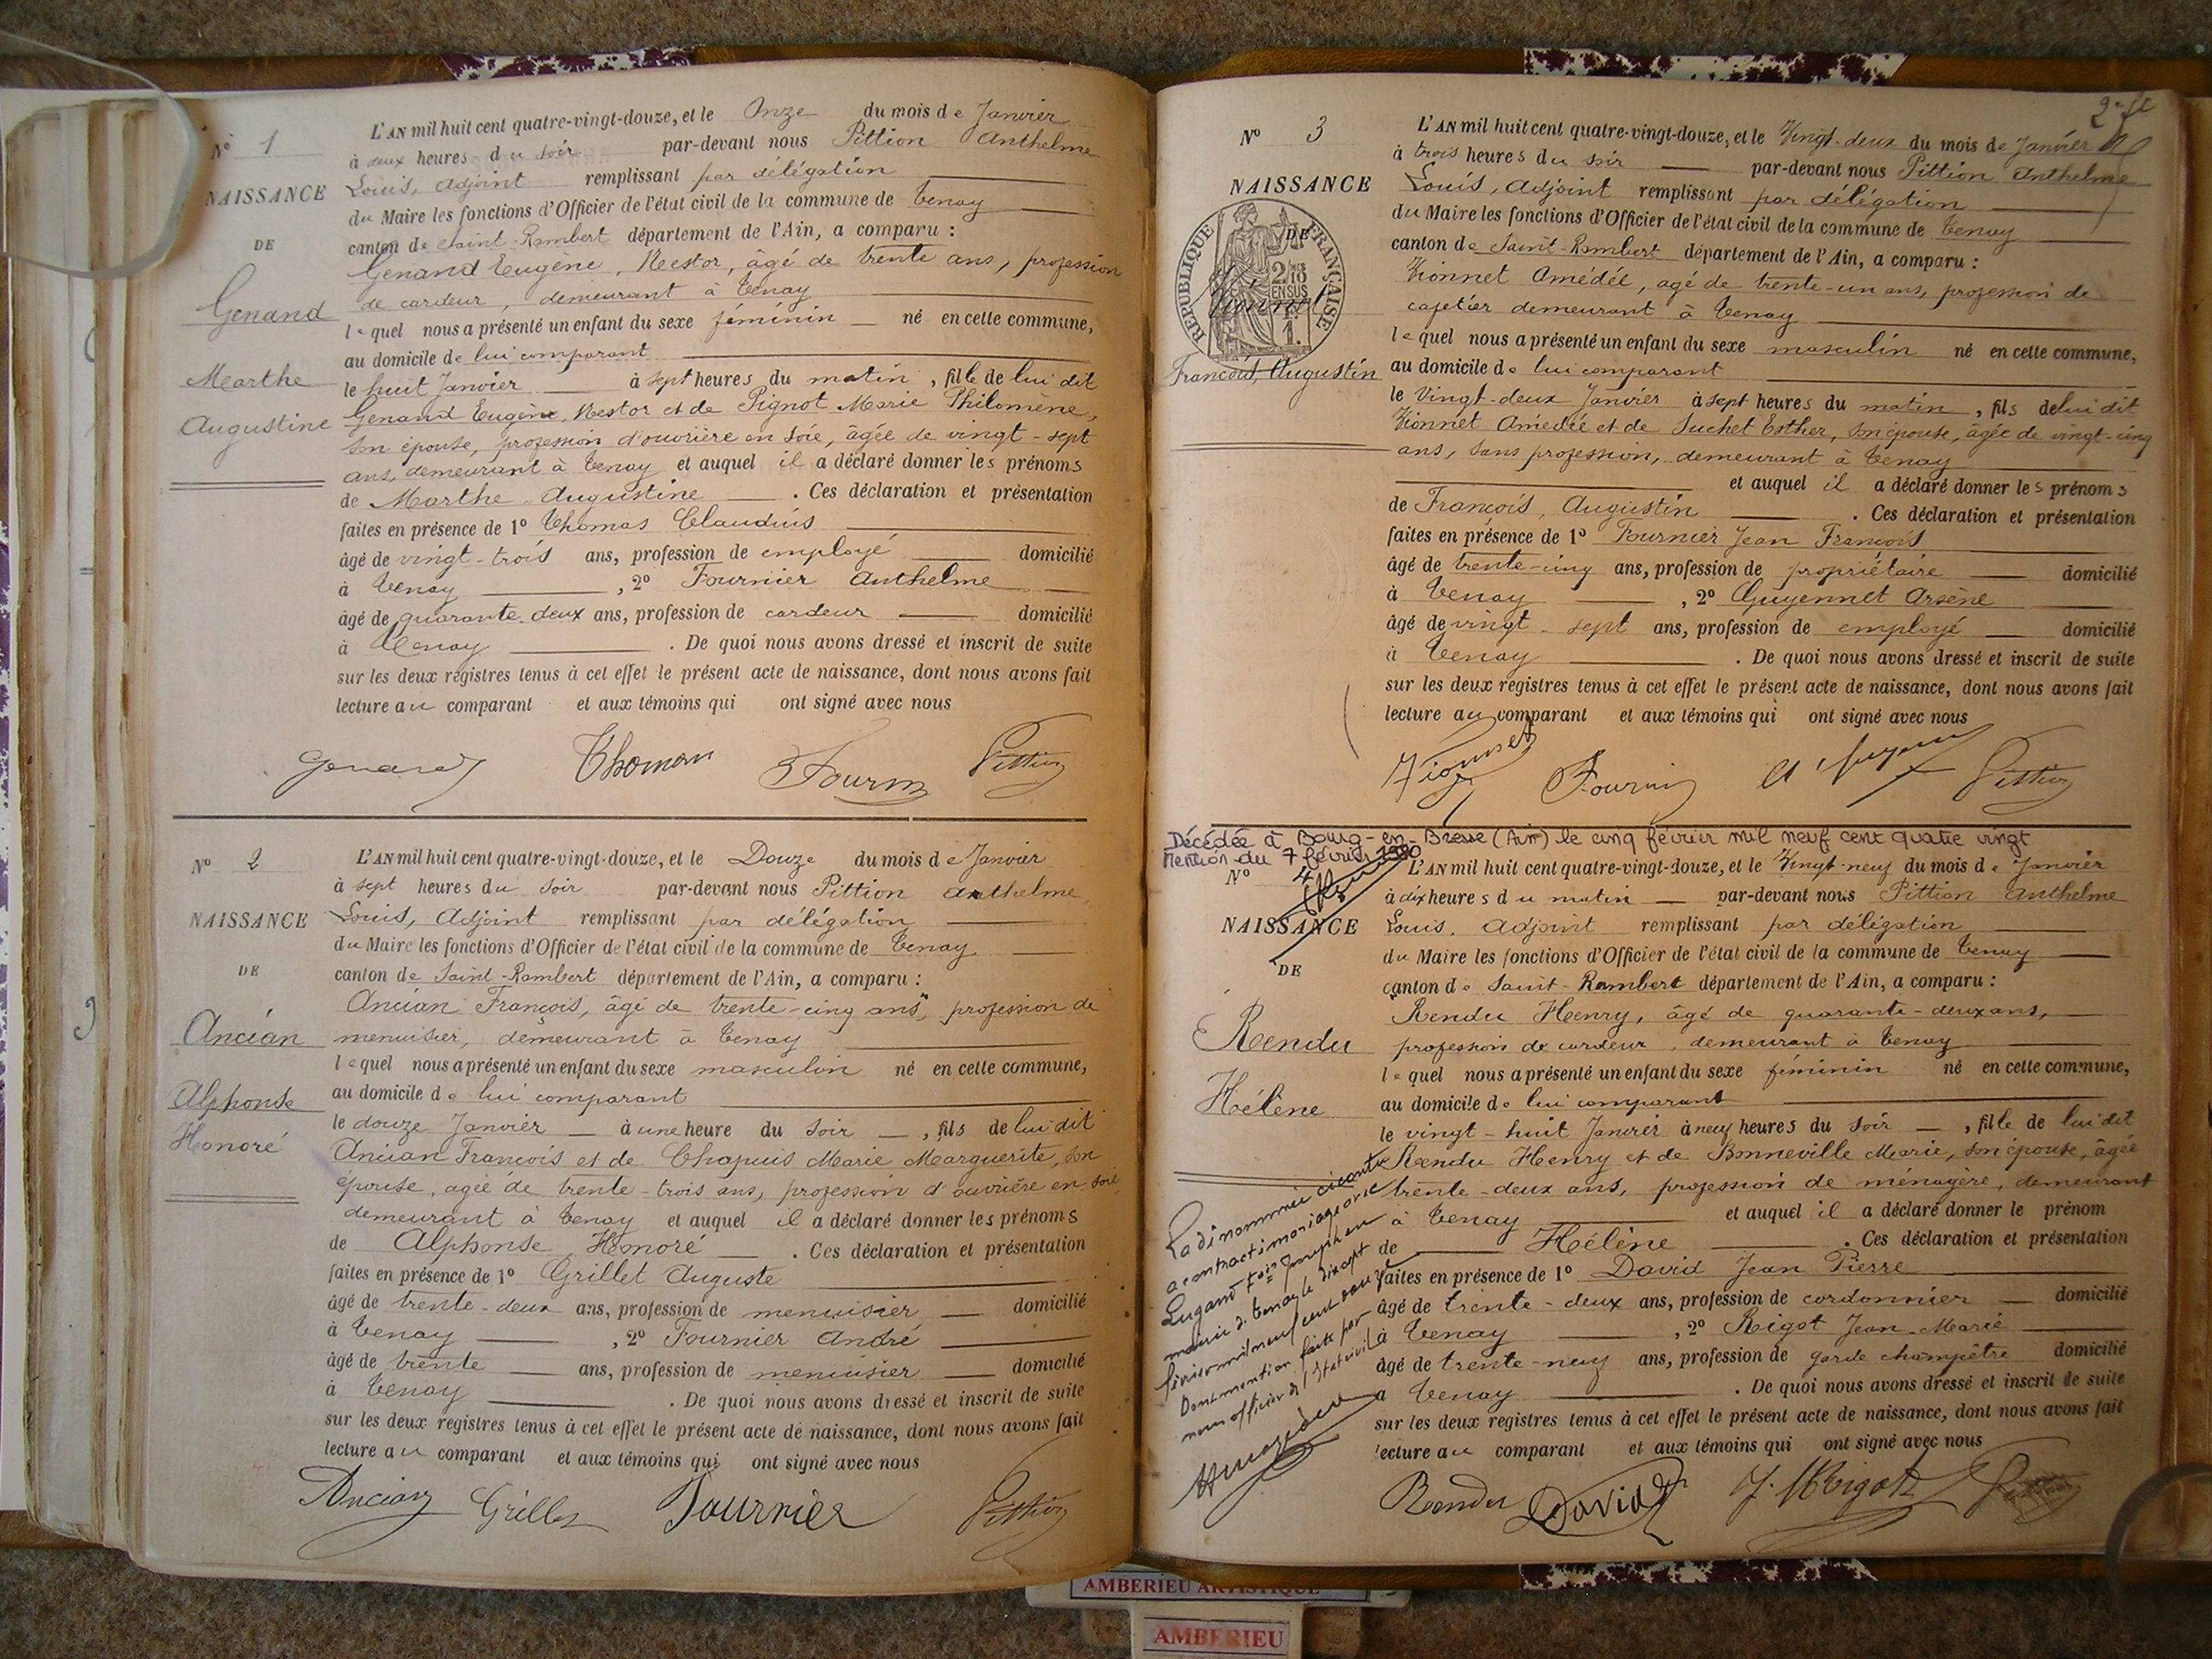 Nº 1
NAISSANCE
DE
Genand
Marthe
Augustine
L'AN mil huit cent quatre-vingt-douze, et le Onze du mois de Janvier
à deux heures du soir par-devant nous Pittion Anthelme
Louis, Adjoint remplissant par délégation
du Maire les fonctions d'Officier de l'état civil de la commune de Tenay
canton de Saint-Rambert département de l'Ain, a comparu :
Genand Eugène, Nestor, âgé de trente ans, profession
de cardeur, demeurant à Tenay
lequel nous a présenté un enfant du sexe féminin né en cette commune,
au domicile de lui comparant
le huit Janvier à sept heures du matin, fille de lui dit
Genand Eugène, Nestor et de Pignot Marie Philomène,
son épouse, profession d'ouvrière en soie, âgée de vingt-sept
ans, demeurant à Tenay et auquel il a déclaré donner les prénoms
de Marthe Augustine . Ces déclaration et présentation
faites en présence de 1º Thomas Claudius
âgé de vingt-trois ans, profession de employé domicilié
à Tenay , 2º Fournier Anthelme
âgé de quarante-deux ans, profession de cardeur domicilié
à Tenay . De quoi nous avons dressé et inscrit de suite
sur les deux registres tenus à cet effet le présent acte de naissance, dont nous avons fait
lecture au comparant et aux témoins qui ont signé avec nous
Genand Thomas Pittion
Nº 2
NAISSANCE
DE
Ancian
Alphonse
Honoré
L'AN mil huit cent quatre-vingt-douze, et le Douze du mois de Janvier
à sept heures du soir par-devant nous Pittion Anthelme,
Louis, Adjoint remplissant par délégation
du Maire les fonctions d'Officier de l'état civil de la commune de Tenay
canton de Saint-Rambert département de l'Ain, a comparu :
Ancian François, âgé de trente-cinq ans, profession de
menuisier, demeurant à Tenay
lequel nous a présenté un enfant du sexe masculin né en cette commune,
au domicile de lui comparant
le douze Janvier à une heure du soir , fils de lui dit
Ancian François et de Chapuis Marie Marguerite, son
épouse, agée de trente-trois ans, profession d'ouvrière en soie,
demeurant à Tenay et auquel il a déclaré donner les prénoms
de Alphonse Honoré . Ces déclaration et présentation
faites en présence de 1º Grillet Auguste
âgé de trente-deux ans, profession de menuisier domicilié
à Tenay , 2º Fournier André
âgé de trente ans, profession de menuisier domicilié
à Tenay . De quoi nous avons dressé et inscrit de suite
sur les deux registres tenus à cet effet le présent acte de naissance, dont nous avons fait
lecture au comparant et aux témoins qui ont signé avec nous
Ancian Grillet Fournier Pittion
Nº 3
NAISSANCE
DE
RÉPUBLIQUE FRANÇAISE
2/10 EN SUS
1.
François, Augustin
L'AN mil huit cent quatre-vingt-douze, et le Vingt-deux du mois de Janvier
à trois heures du soir par-devant nous Pittion Anthelme
Louis, Adjoint remplissant par délégation
du Maire les fonctions d'Officier de l'état civil de la commune de Tenay
canton de Saint-Rambert département de l'Ain, a comparu :
Vionnet Amédée, agé de trente-un ans, profession de
cafetier demeurant à Tenay
lequel nous a présenté un enfant du sexe masculin né en cette commune,
au domicile de lui comparant
le Vingt-deux Janvier à sept heures du matin, fils de lui dit
Vionnet Amédée et de Suchet Esther, son épouse, âgée de vingt-cinq
ans, sans profession, demeurant à Tenay
et auquel il a déclaré donner les prénoms
de François, Augustin . Ces déclaration et présentation
faites en présence de 1º Fournier Jean François
âgé de trente-cinq ans, profession de propriétaire domicilié
à Tenay , 2º Guyennet Arsène
âgé de vingt-sept ans, profession de employé domicilié
à Tenay . De quoi nous avons dressé et inscrit de suite
sur les deux registres tenus à cet effet le présent acte de naissance, dont nous avons fait
lecture au comparant et aux témoins qui ont signé avec nous
Vionnet Pittion
Décédée à Bourg-en-Bresse (Ain) le cinq février mil neuf cent quatre vingt
Mention du 7 février 1980
Nº 4
NAISSANCE
DE
Rendu
Hélène
L'AN mil huit cent quatre-vingt-douze, et le Vingt-neuf du mois de Janvier
à dix heures du matin par-devant nous Pittion Anthelme
Louis, Adjoint remplissant par délégation
du Maire les fonctions d'Officier de l'état civil de la commune de Tenay
canton de Saint-Rambert département de l'Ain, a comparu :
Rendu Henry, âgé de quarante-deux ans,
profession de cardeur, demeurant à Tenay
lequel nous a présenté un enfant du sexe féminin né en cette commune,
au domicile de lui comparant
le vingt-huit Janvier à neuf heures du soir , fille de lui dit
Rendu Henry et de Bonneville Marie, son épouse, âgée
trente-deux ans, profession de ménagère, demeurant
à Tenay et auquel il a déclaré donner le prénom
de Hélène . Ces déclaration et présentation
faites en présence de 1º David Jean Pierre
âgé de trente-deux ans, profession de cordonnier domicilié
à Tenay , 2º Rigot Jean-Marie
âgé de trente-neuf ans, profession de garde champêtre domicilié
à Tenay . De quoi nous avons dressé et inscrit de suite
sur les deux registres tenus à cet effet le présent acte de naissance, dont nous avons fait
lecture au comparant et aux témoins qui ont signé avec nous
Rendu David J. Rigot Pittion
La dénommée ci contre
a contracté mariage avec
Lugand Fois Joseph en
mairie de Tenay le dix sept
février mil neuf cent
Dont mention faite par
nous officier de l'état civil
AMBERIEU ARTISTIQUE
AMBERIEU